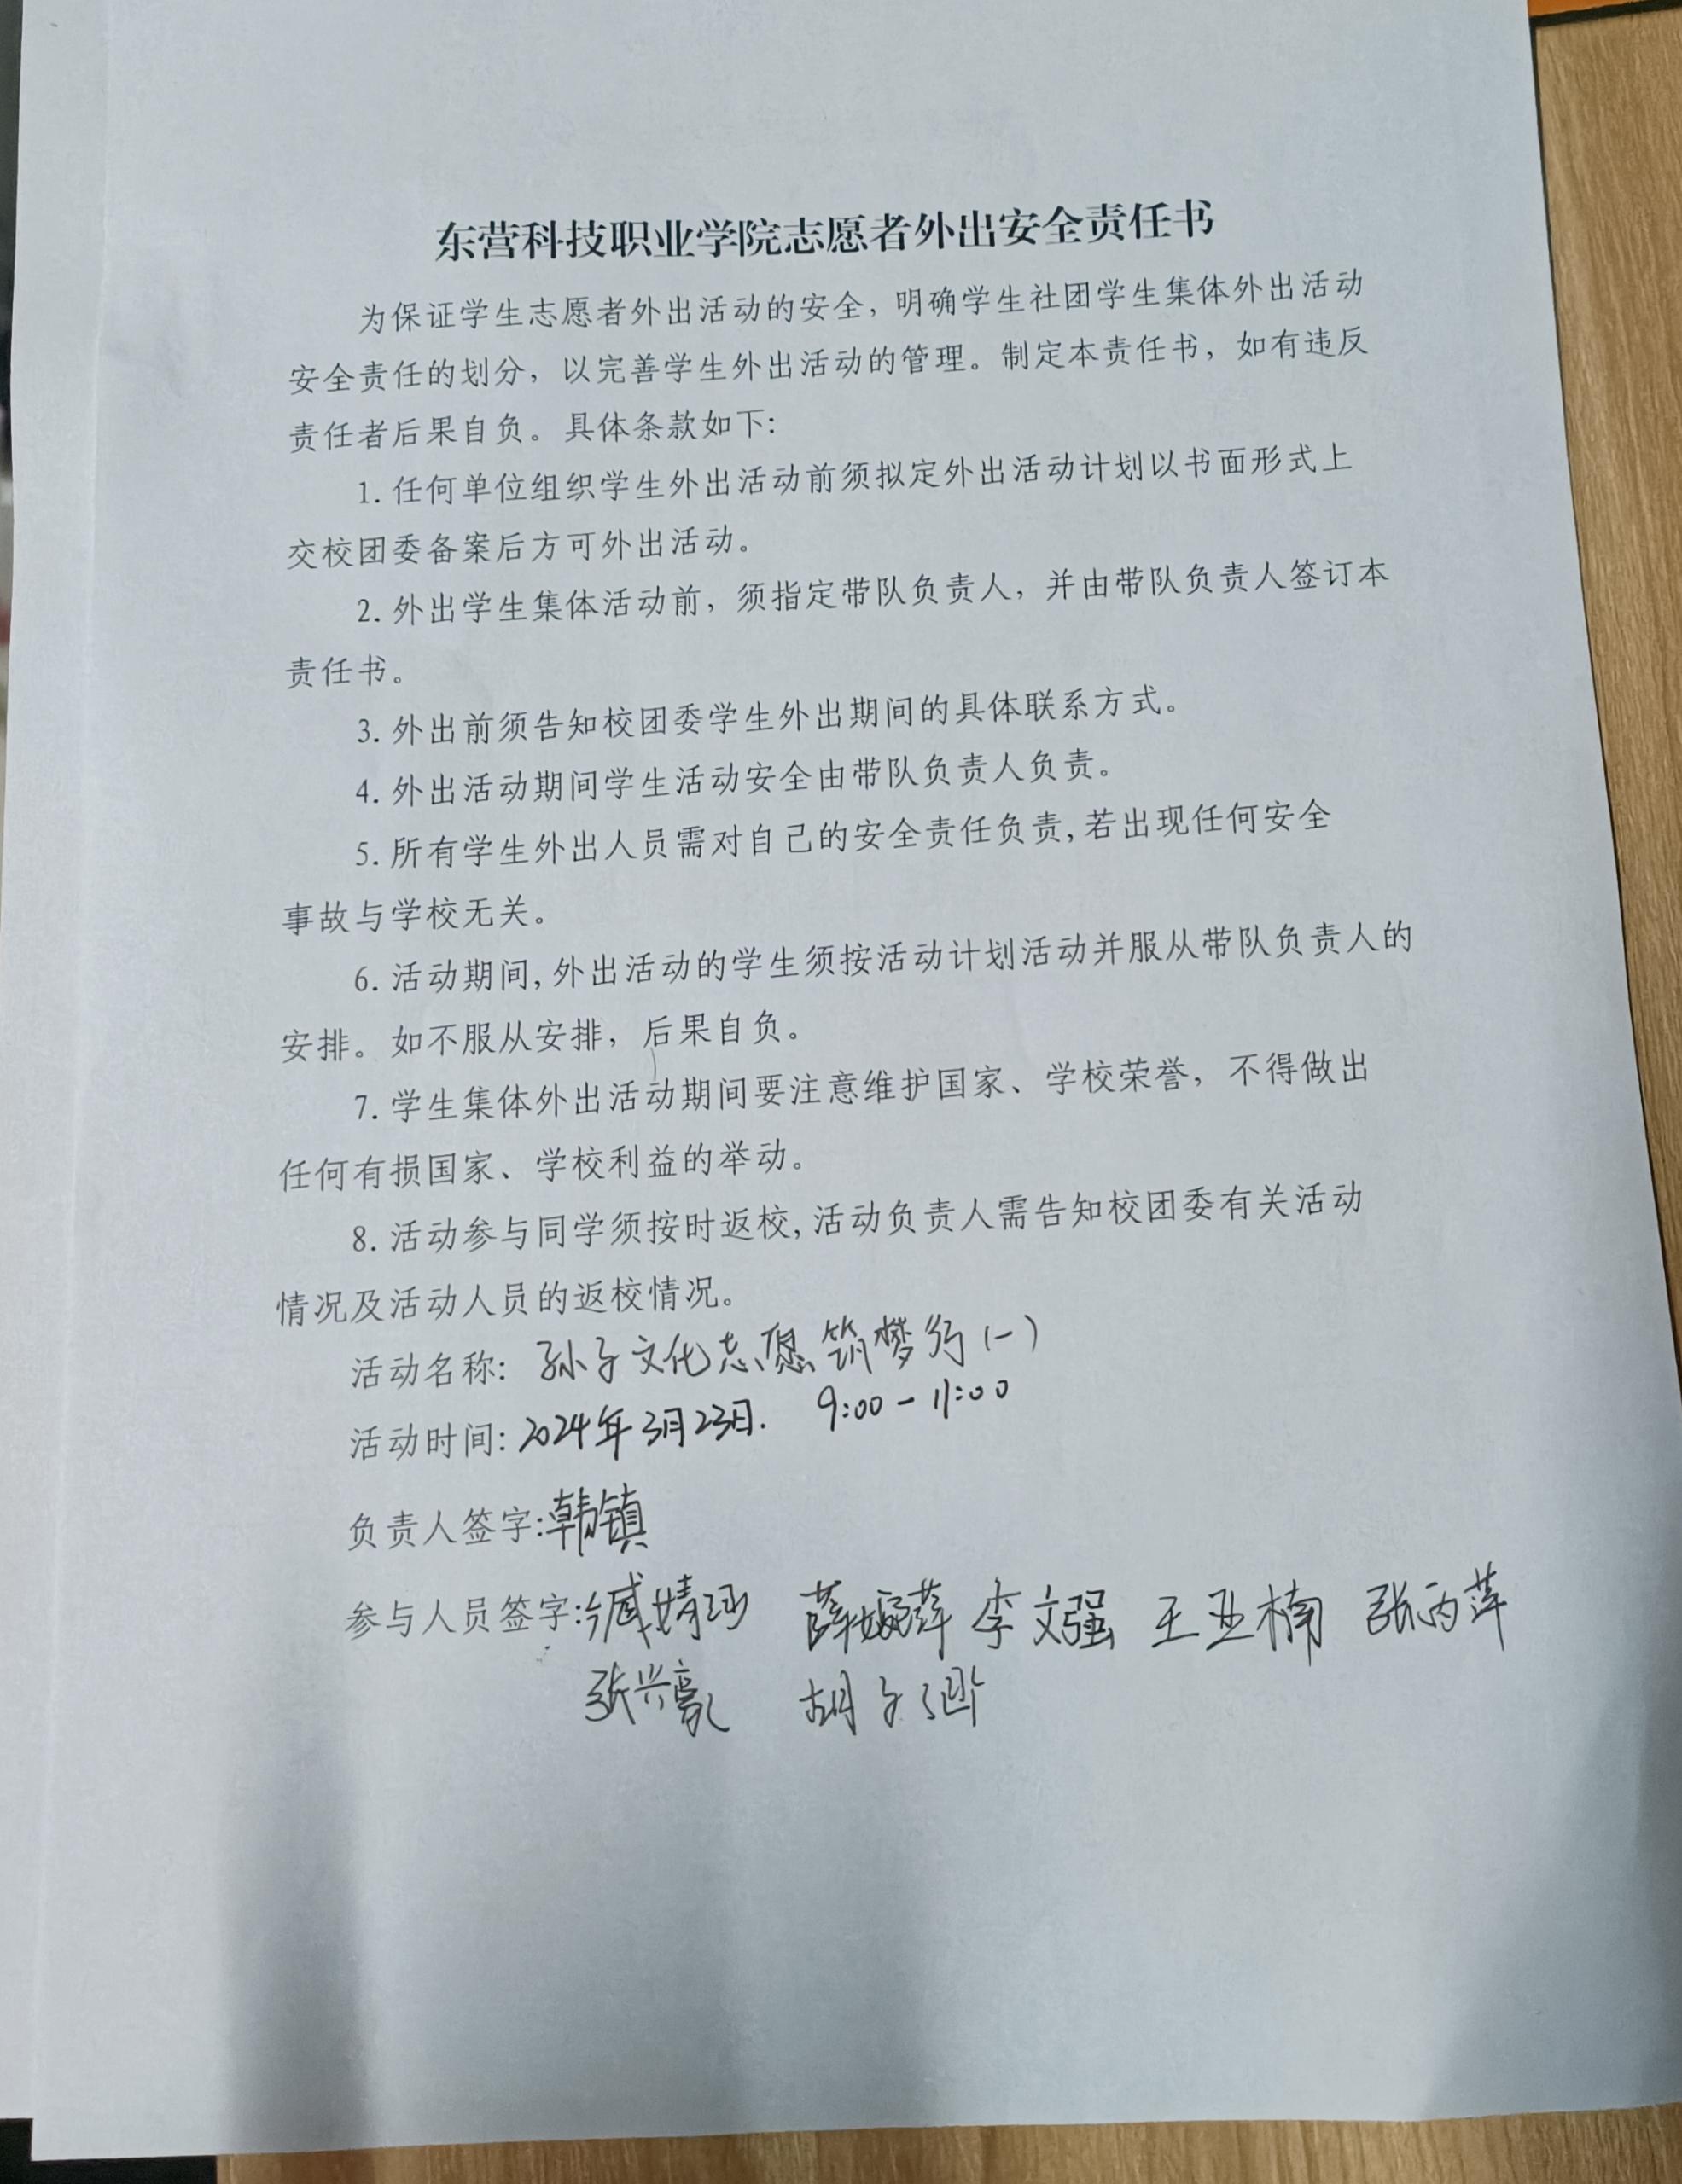 东营科技职业学院志愿者外出安全责任书
为保证学生志愿者外出活动的安全，明确学生社团学生集体外出活动
安全责任的划分，以完善学生外出活动的管理。制定本责任书，如有违反
责任者后果自负。具体条款如下：
1. 任何单位组织学生外出活动前须拟定外出活动计划以书面形式上
交校团委备案后方可外出活动。
2. 外出学生集体活动前，须指定带队负责人，并由带队负责人签订本
责任书。
3. 外出前须告知校团委学生外出期间的具体联系方式。
4. 外出活动期间学生活动安全由带队负责人负责。
5. 所有学生外出人员需对自己的安全责任负责,若出现任何安全
事故与学校无关。
6. 活动期间,外出活动的学生须按活动计划活动并服从带队负责人的
安排。如不服从安排，后果自负。
7. 学生集体外出活动期间要注意维护国家、学校荣誉，不得做出
任何有损国家、学校利益的举动。
8. 活动参与同学须按时返校,活动负责人需告知校团委有关活动
情况及活动人员的返校情况。
活动名称：孙子文化志愿筑梦行(一)
活动时间：2024年3月23日. 9:00-11:00
负责人签字:韩镇
参与人员签字: 李文强 王亚楠 张丙萍
张兴豪